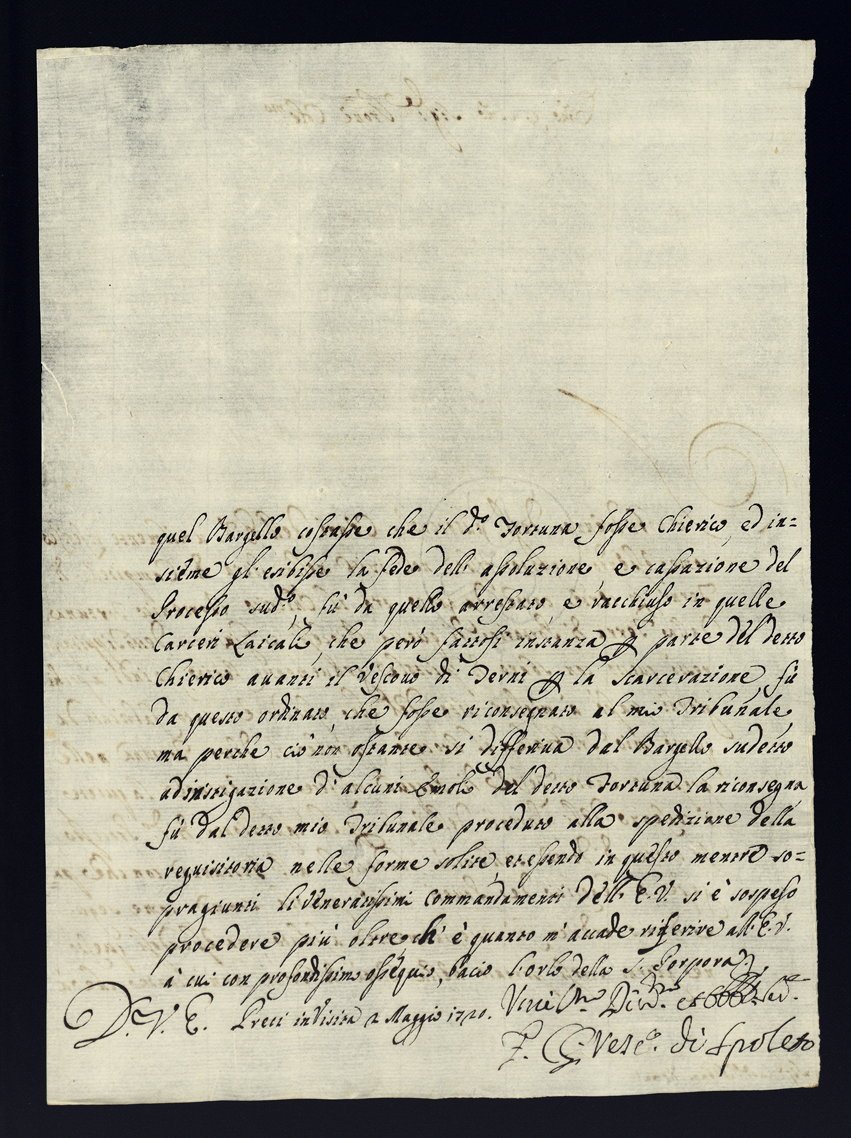 quel Bargello costasse che il d.º Fortuna fosse Chierico, ed in=
sieme gl'esibisse la fede dell'assoluzione e cassazione del
Processo sud.º fù da quello arrestato e racchiuso in quelle
Carceri Laicali, che però fattosi instanza p parte del detto
Chierico avanti il Vescovo di Terni p la scarcerazione fù
da questo ordinato che fosse riconsegnato al mio Tribunale
ma perche ciò non ostante si differiva dal Bargello sudetto
ad instigazione d'alcuni Emoli del detto Fortuna la riconsegna
fù dal detto mio Tribunale proceduto alla spedizione della
requisitoria nelle forme solite et essendo in questo mentre so=
pragiunti li veneratissimi commandamenti dell'E.V. si è sospeso
procedere più oltre, ch'è quanto m'accade riferire all'E.V.
à cui con profondissimo ossequio, bacio l'orlo della S. Porpora
D. V. E. Preci in Visita 2 Maggio 1720.
Vesc.º di Spoleto